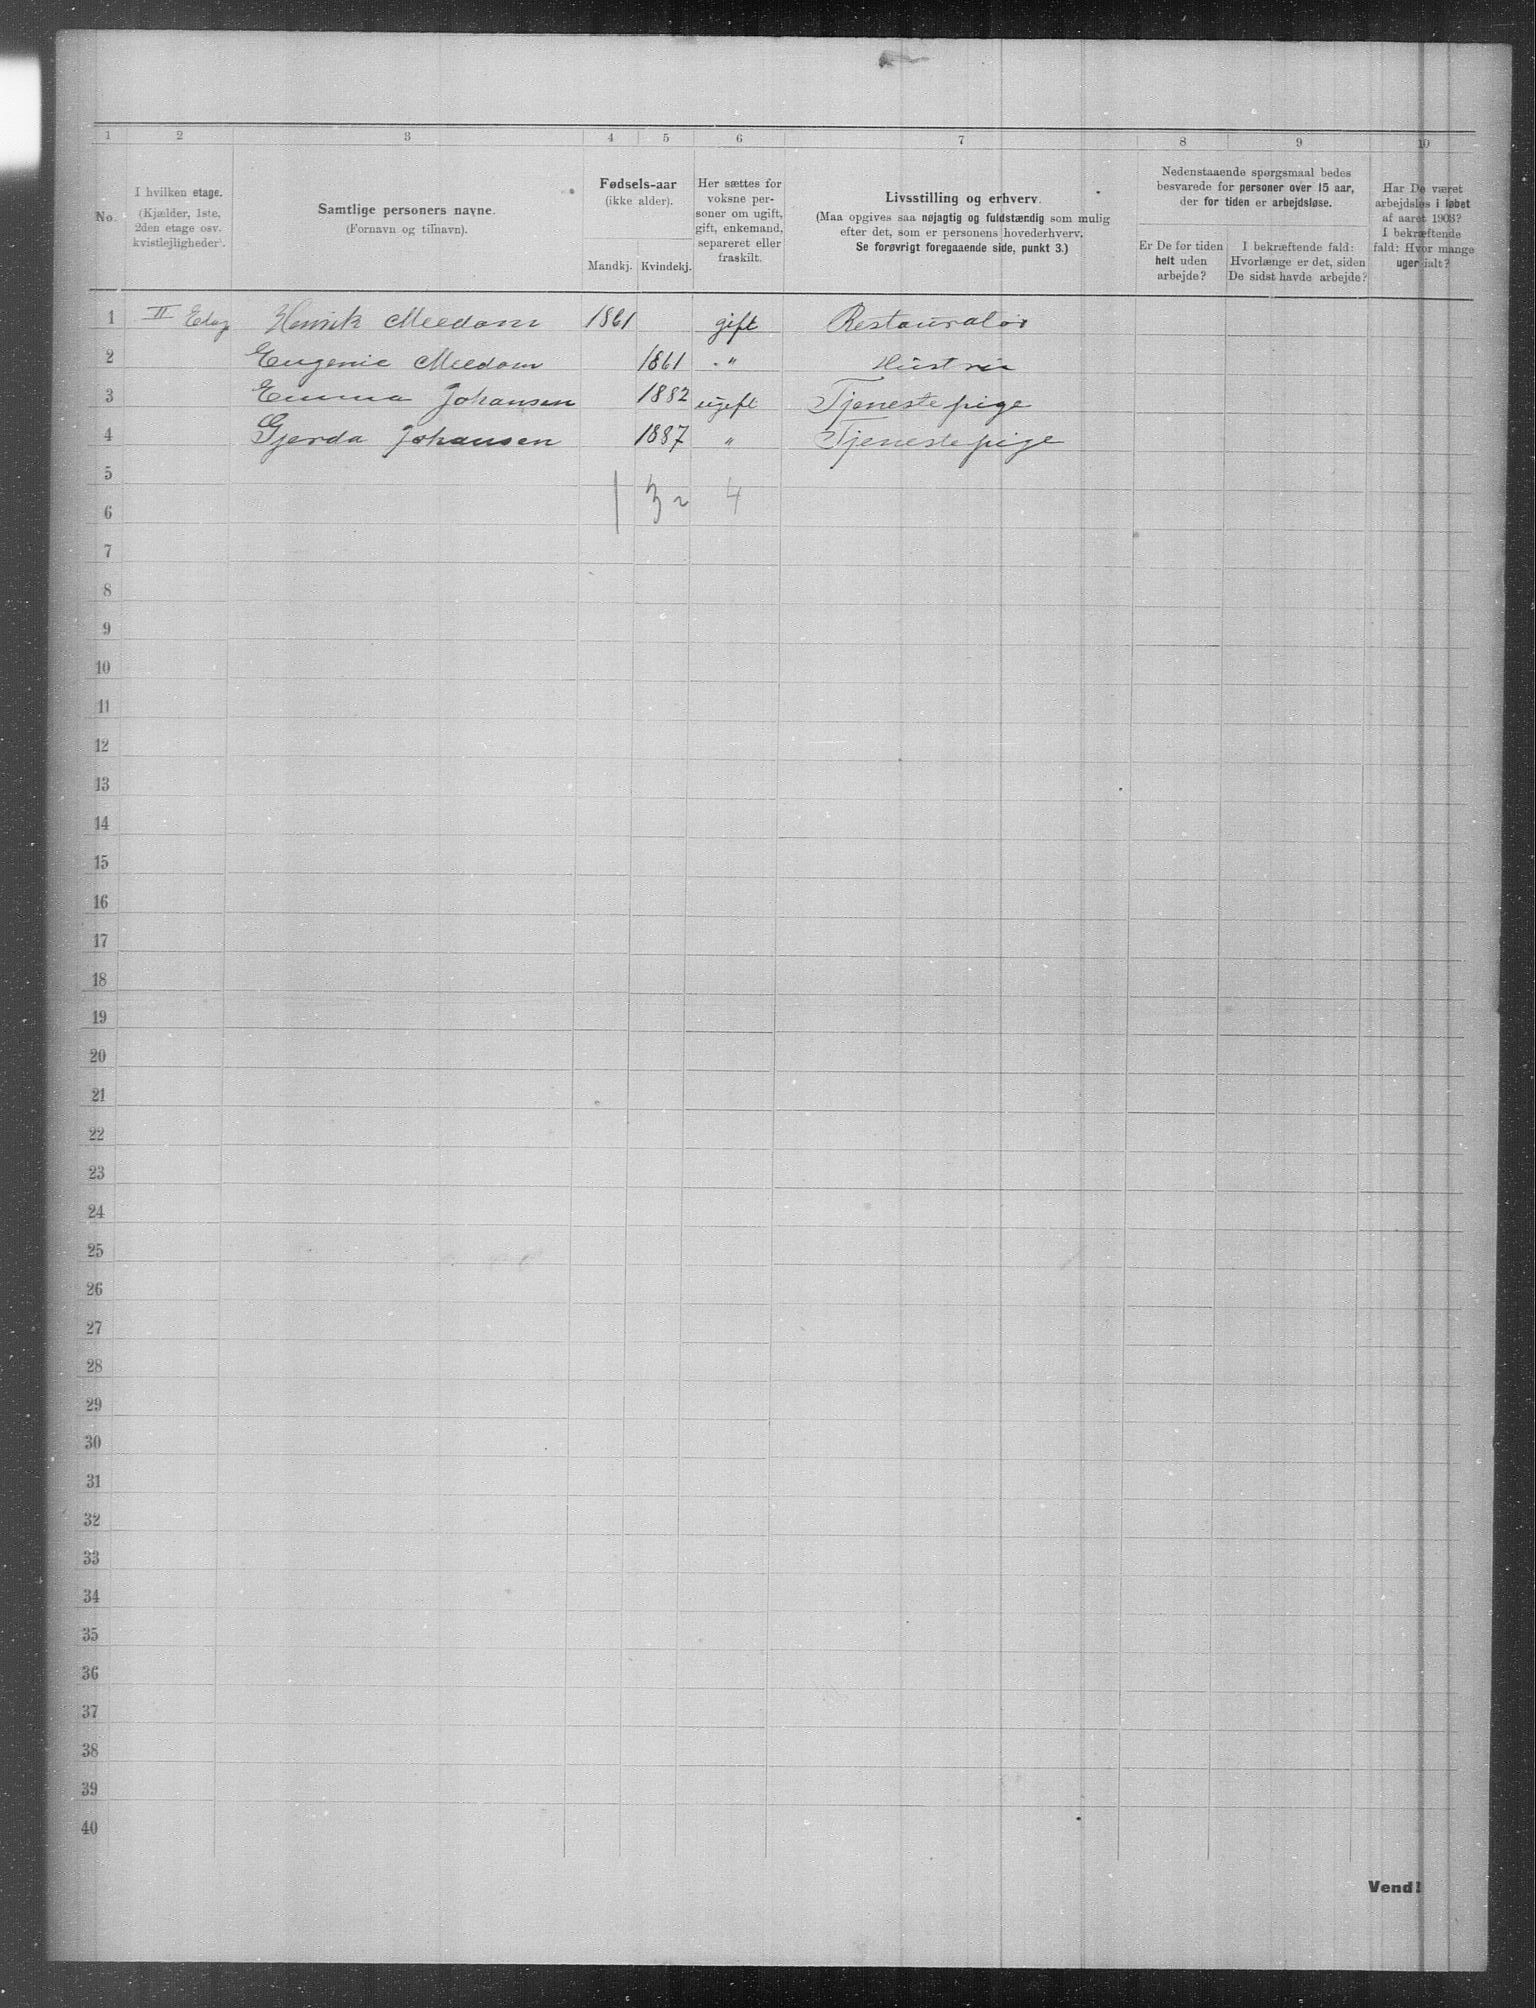 1 2 3 4 5 6 7 8 9 10
No.
I hvilken etage.
(Kjælder, 1ste,
2den etage osv.
kvistlejligheder).
Samtlige personers navne.
(Fornavn og tilnavn).
Fødsels-aar
(ikke alder).
Mandkj. Kvindekj.
Her sættes for
voksne per-
soner om ugift,
gift, enkemand,
separeret eller
fraskilt.
Livsstilling og erhverv.
(Maa opgives saa nøjagtig og fuldstændig som mulig
efter det, som er personens hovederhverv.
Se forøvrigt foregaaende side, punkt 3.)
Nedenstaaende spørgsmaal bedes
besvarede for personer over 15 aar,
der for tiden er arbejdsløse.
Er De for tiden
helt uden
arbejde?
I bekræftende fald:
Hvorlænge er det, siden
De sidst havde arbejde?
Har De været
arbejdsløs i løbet
af aaret 1903?
I bekræftende
fald: Hvor mange
uger ialt?
1 II Etag Henrik Meedom 1861 gift Restauratør
2 Eugenie Meedom 1861 " Hustru
3 Emma Johansen 1882 ugift Tjenestepige
4 Gjerda Johansen 1887 " Tjenestepige
5
6 1 3 2 4
7
8
9
10
11
12
13
14
15
16
17
18
19
20
21
22
23
24
25
26
27
28
29
30
31
32
33
34
35
36
37
38
39
40
Vend!